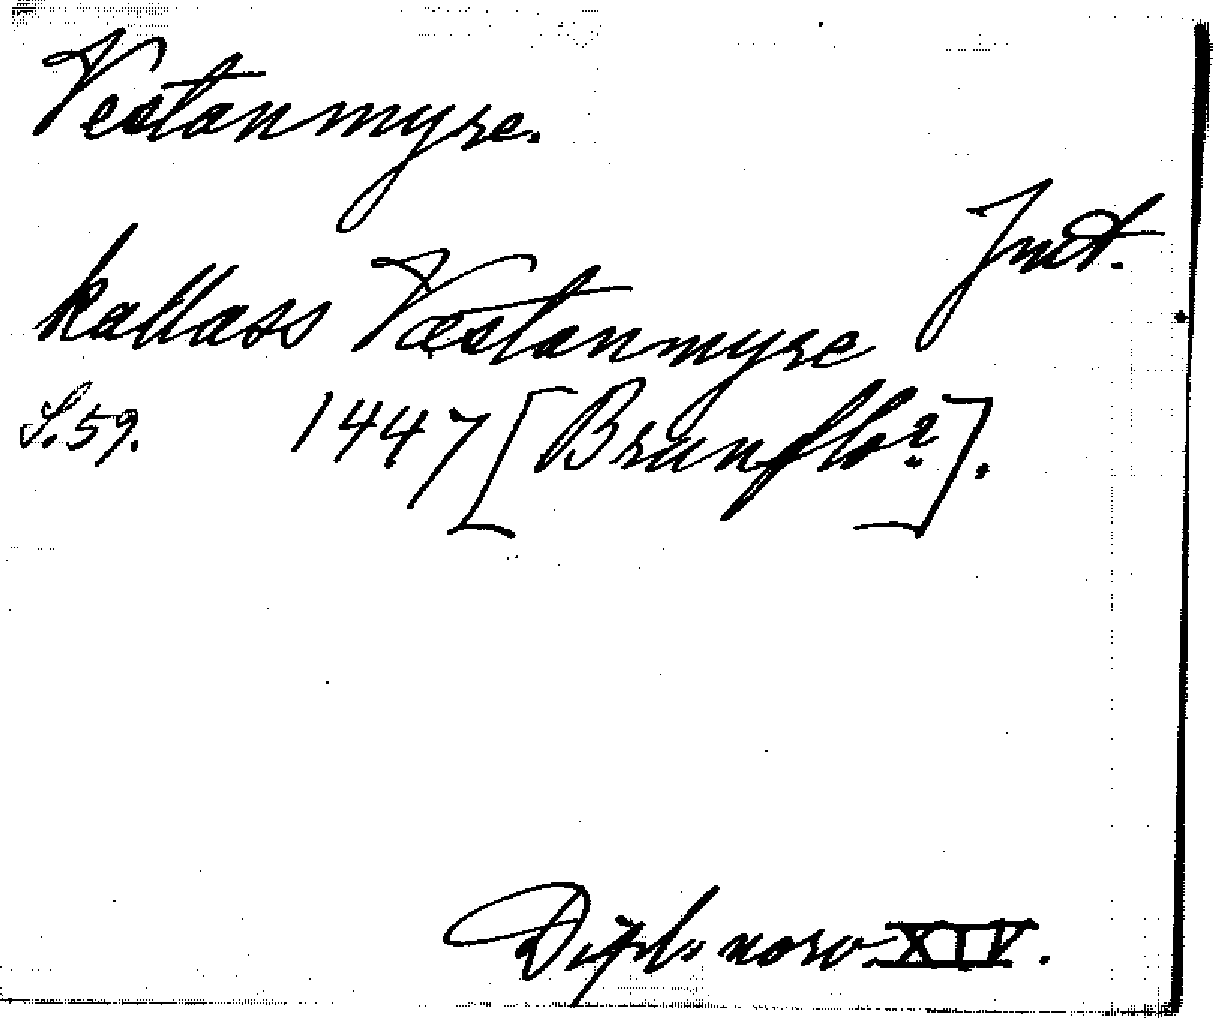 Vestanmyre.
Jmt.
kallass Væstanmyre
S. 59. 1447 [Brunflo?].
Dipl. norv. XIV.